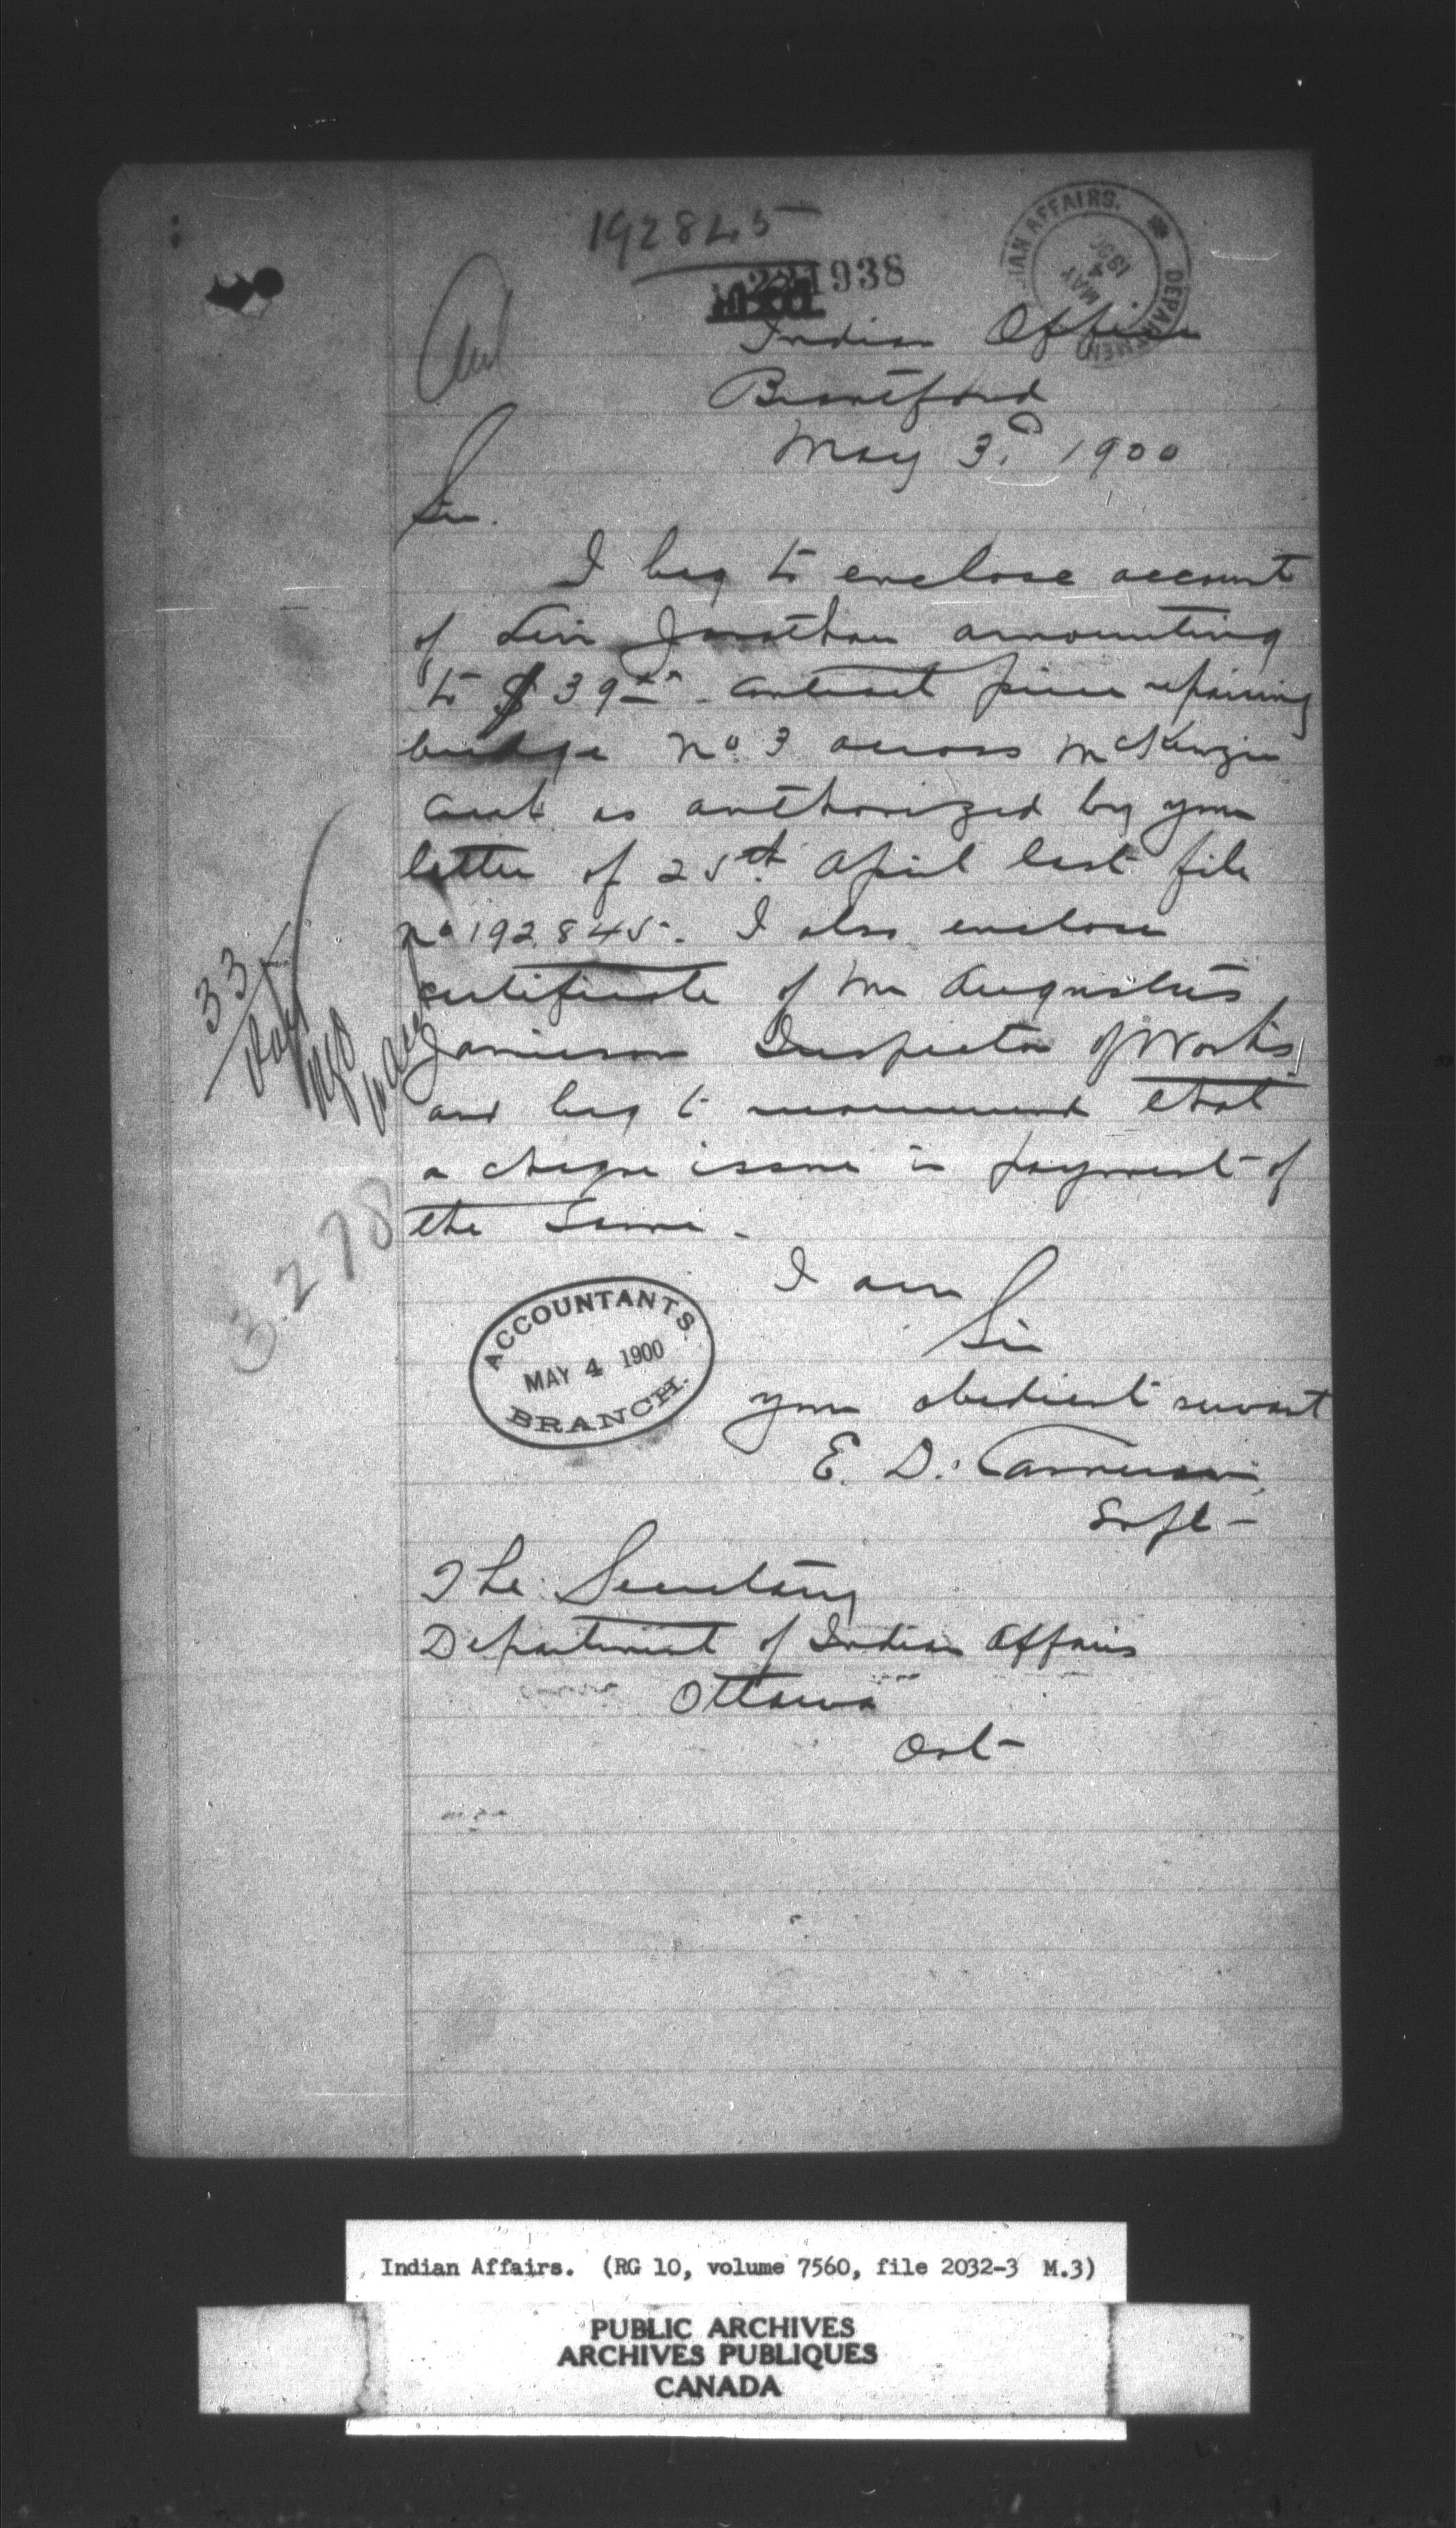 192845
221938
INDIAN AFFAIRS. DEPARTMENT
MAY 4 1900
Indian Office
Brantford
May 3rd 1900
Sir.
I beg to enclose account
of Levi Jonathan amounting
to $39.00 - contract price repairing
bridge No. 3 across McKenzie
Creek as authorized by your
letter of 25th April last file
No 192845. I also enclose
certificate of Mr Augustus
Jamieson Inspector of Works
and beg to recommend that
a cheque issue in payment of
the same.
33
3278
I am
Sir
your obedient servant
E. D. Cameron
Supt
ACCOUNTANTS.
MAY 4 1900
BRANCH.
The Secretary
Department of Indian Affairs
Ottawa
Ont
Indian Affairs. (RG 10, volume 7560, file 2032-3 M.3)
PUBLIC ARCHIVES
ARCHIVES PUBLIQUES
CANADA